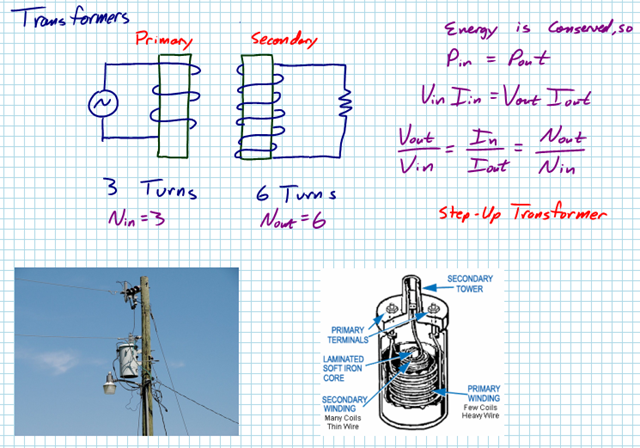 Transformers
Primary
Secondary
3 Turns
Nin = 3
6 Turns
Nout = 6
Energy is Conserved, so
Pin = Pout
Vin Iin = Vout Iout
Vout/Vin = In/Iout = Nout/Nin
Step-Up Transformer
SECONDARY
TOWER
PRIMARY
TERMINALS
LAMINATED
SOFT IRON
CORE
SECONDARY
WINDING
Many Coils
Thin Wire
PRIMARY
WINDING
Few Coils
Heavy Wire